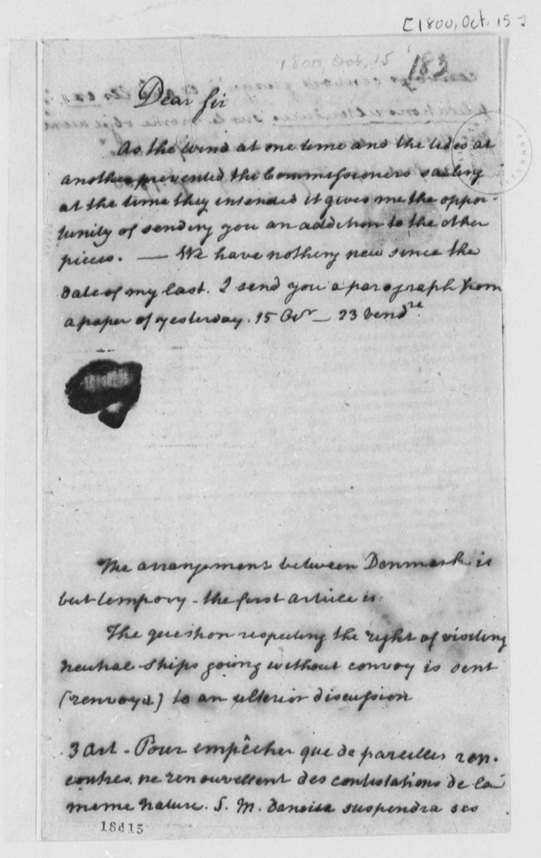 [1800, Oct. 15]
1800 Oct. 15
183
Dear Sir
As the wind at one time and the tides at
another prevented the Commissioners sailing
at the time they intended it gives me the oppor-
tunity of sending you an addition to the other
pieces. — We have nothing new since the
date of my last. I send you a paragraph from
a paper of yesterday. 15 Octr — 23 Vendre
The arrangement between Denmark is
but tempory - the first article is
The question respecting the right of visiting
neutral ships going without convoy is sent
(renvoyé) to an ulterior discussion
3 Art - Pour empêcher que de pareilles ren-
contres ne renouvellent des contestations de la
meme nature. S. M. danoise suspendra ses
18415